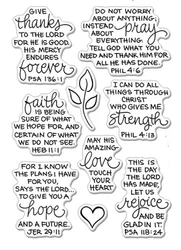 GIVE
thanks
TO THE LORD
FOR HE IS GOOD.
HIS MERCY
ENDURES
forever
PSA 136:1
DO NOT WORRY
ABOUT ANYTHING;
INSTEAD
pray
ABOUT
EVERYTHING.
TELL GOD WHAT YOU
NEED AND THANK HIM FOR
ALL HE HAS DONE.
PHIL 4:6
faith
IS BEING
SURE OF WHAT
WE HOPE FOR, AND
CERTAIN OF WHAT
WE DO NOT SEE.
HEB 11:1
I CAN DO ALL
THINGS THROUGH
CHRIST
WHO GIVES ME
strength
PHIL 4:13
MAY HIS
AMAZING
love
TOUCH
YOUR
HEART
FOR I KNOW
THE PLANS I HAVE
FOR YOU,
SAYS THE LORD...
TO GIVE YOU A
hope
AND A FUTURE.
JER 29:11
THIS IS
THE DAY
THE LORD
HAS MADE,
LET US
rejoice
AND BE
GLAD IN IT.
PSA 118:24